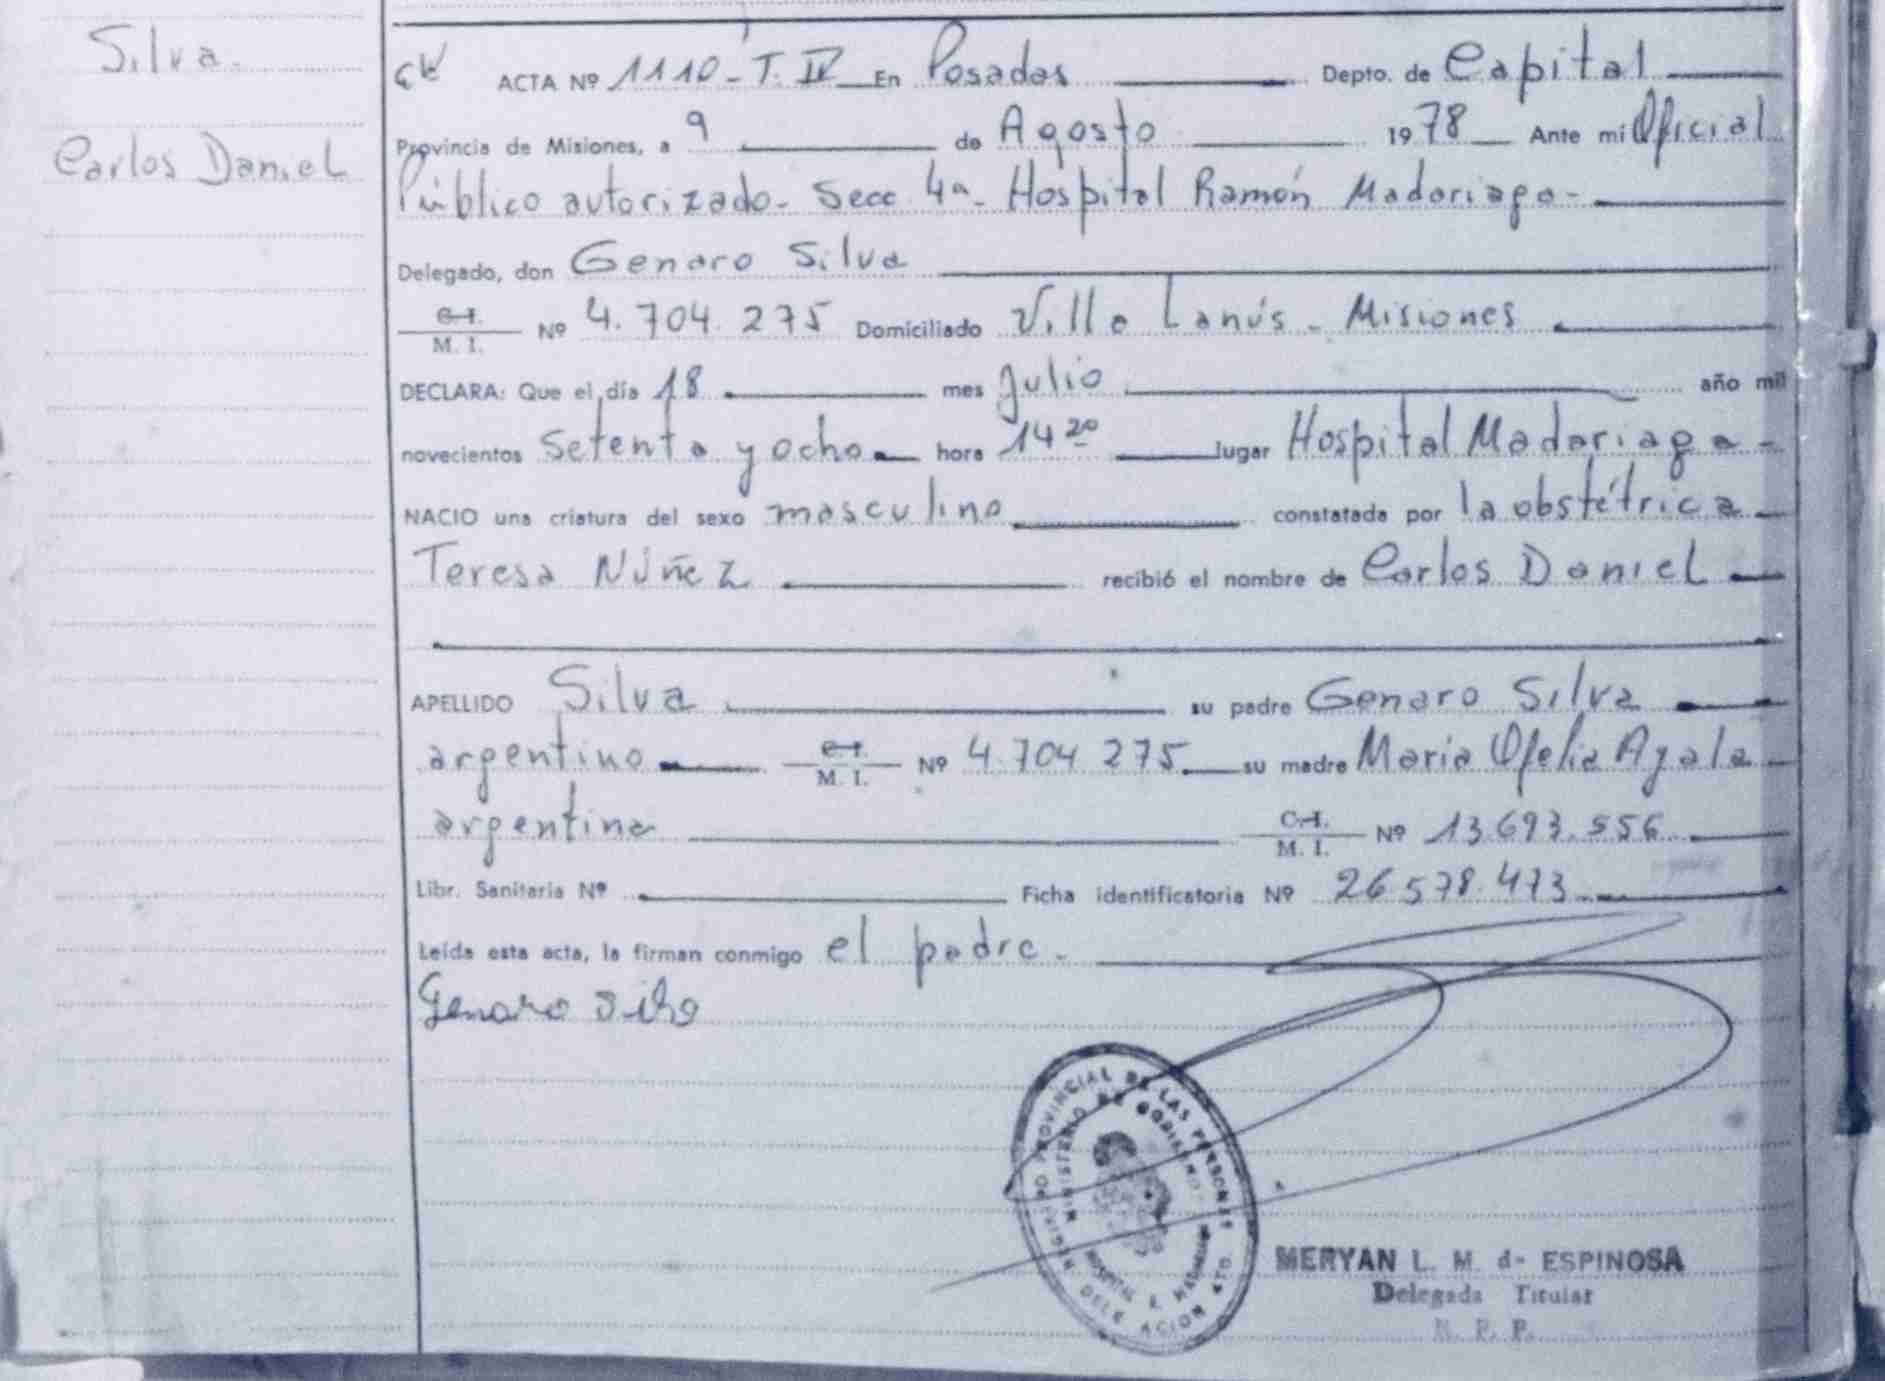 Silva.
Carlos Daniel
ACTA Nº 1110 - T. IV En Posadas Depto. de Capital
Provincia de Misiones, a 9 de Agosto 1978 Ante mi Oficial
Público autorizado. Secc. 4ª. Hospital Ramón Madariaga -
Delegado, don Genaro Silva
C.I. M. I. Nº 4.704.275 Domiciliado Villa Lanús - Misiones
DECLARA: Que el día 18 mes Julio año mil
novecientos setenta y ocho hora 14 20 lugar Hospital Madariaga -
NACIO una criatura del sexo masculino constatada por la obstétrica
Teresa Núñez recibió el nombre de Carlos Daniel
APELLIDO Silva su padre Genaro Silva
argentino C.I. M. I. Nº 4.704.275 su madre Maria Ofelia Ayala
argentina C.I. M. I. Nº 13.693.556
Libr. Sanitaria Nº Ficha identificatoria Nº 26.578.473
Leída esta acta, la firman conmigo el padre -
Genaro Silva
PROVINCIAL DE LAS PERSONAS
MINISTERIO DE GOBIERNO
HOSPITAL R. MADARIAGA
DELEGACION 4TO.
MERYAN L. M. de ESPINOSA
Delegada Titular
R. P. P.